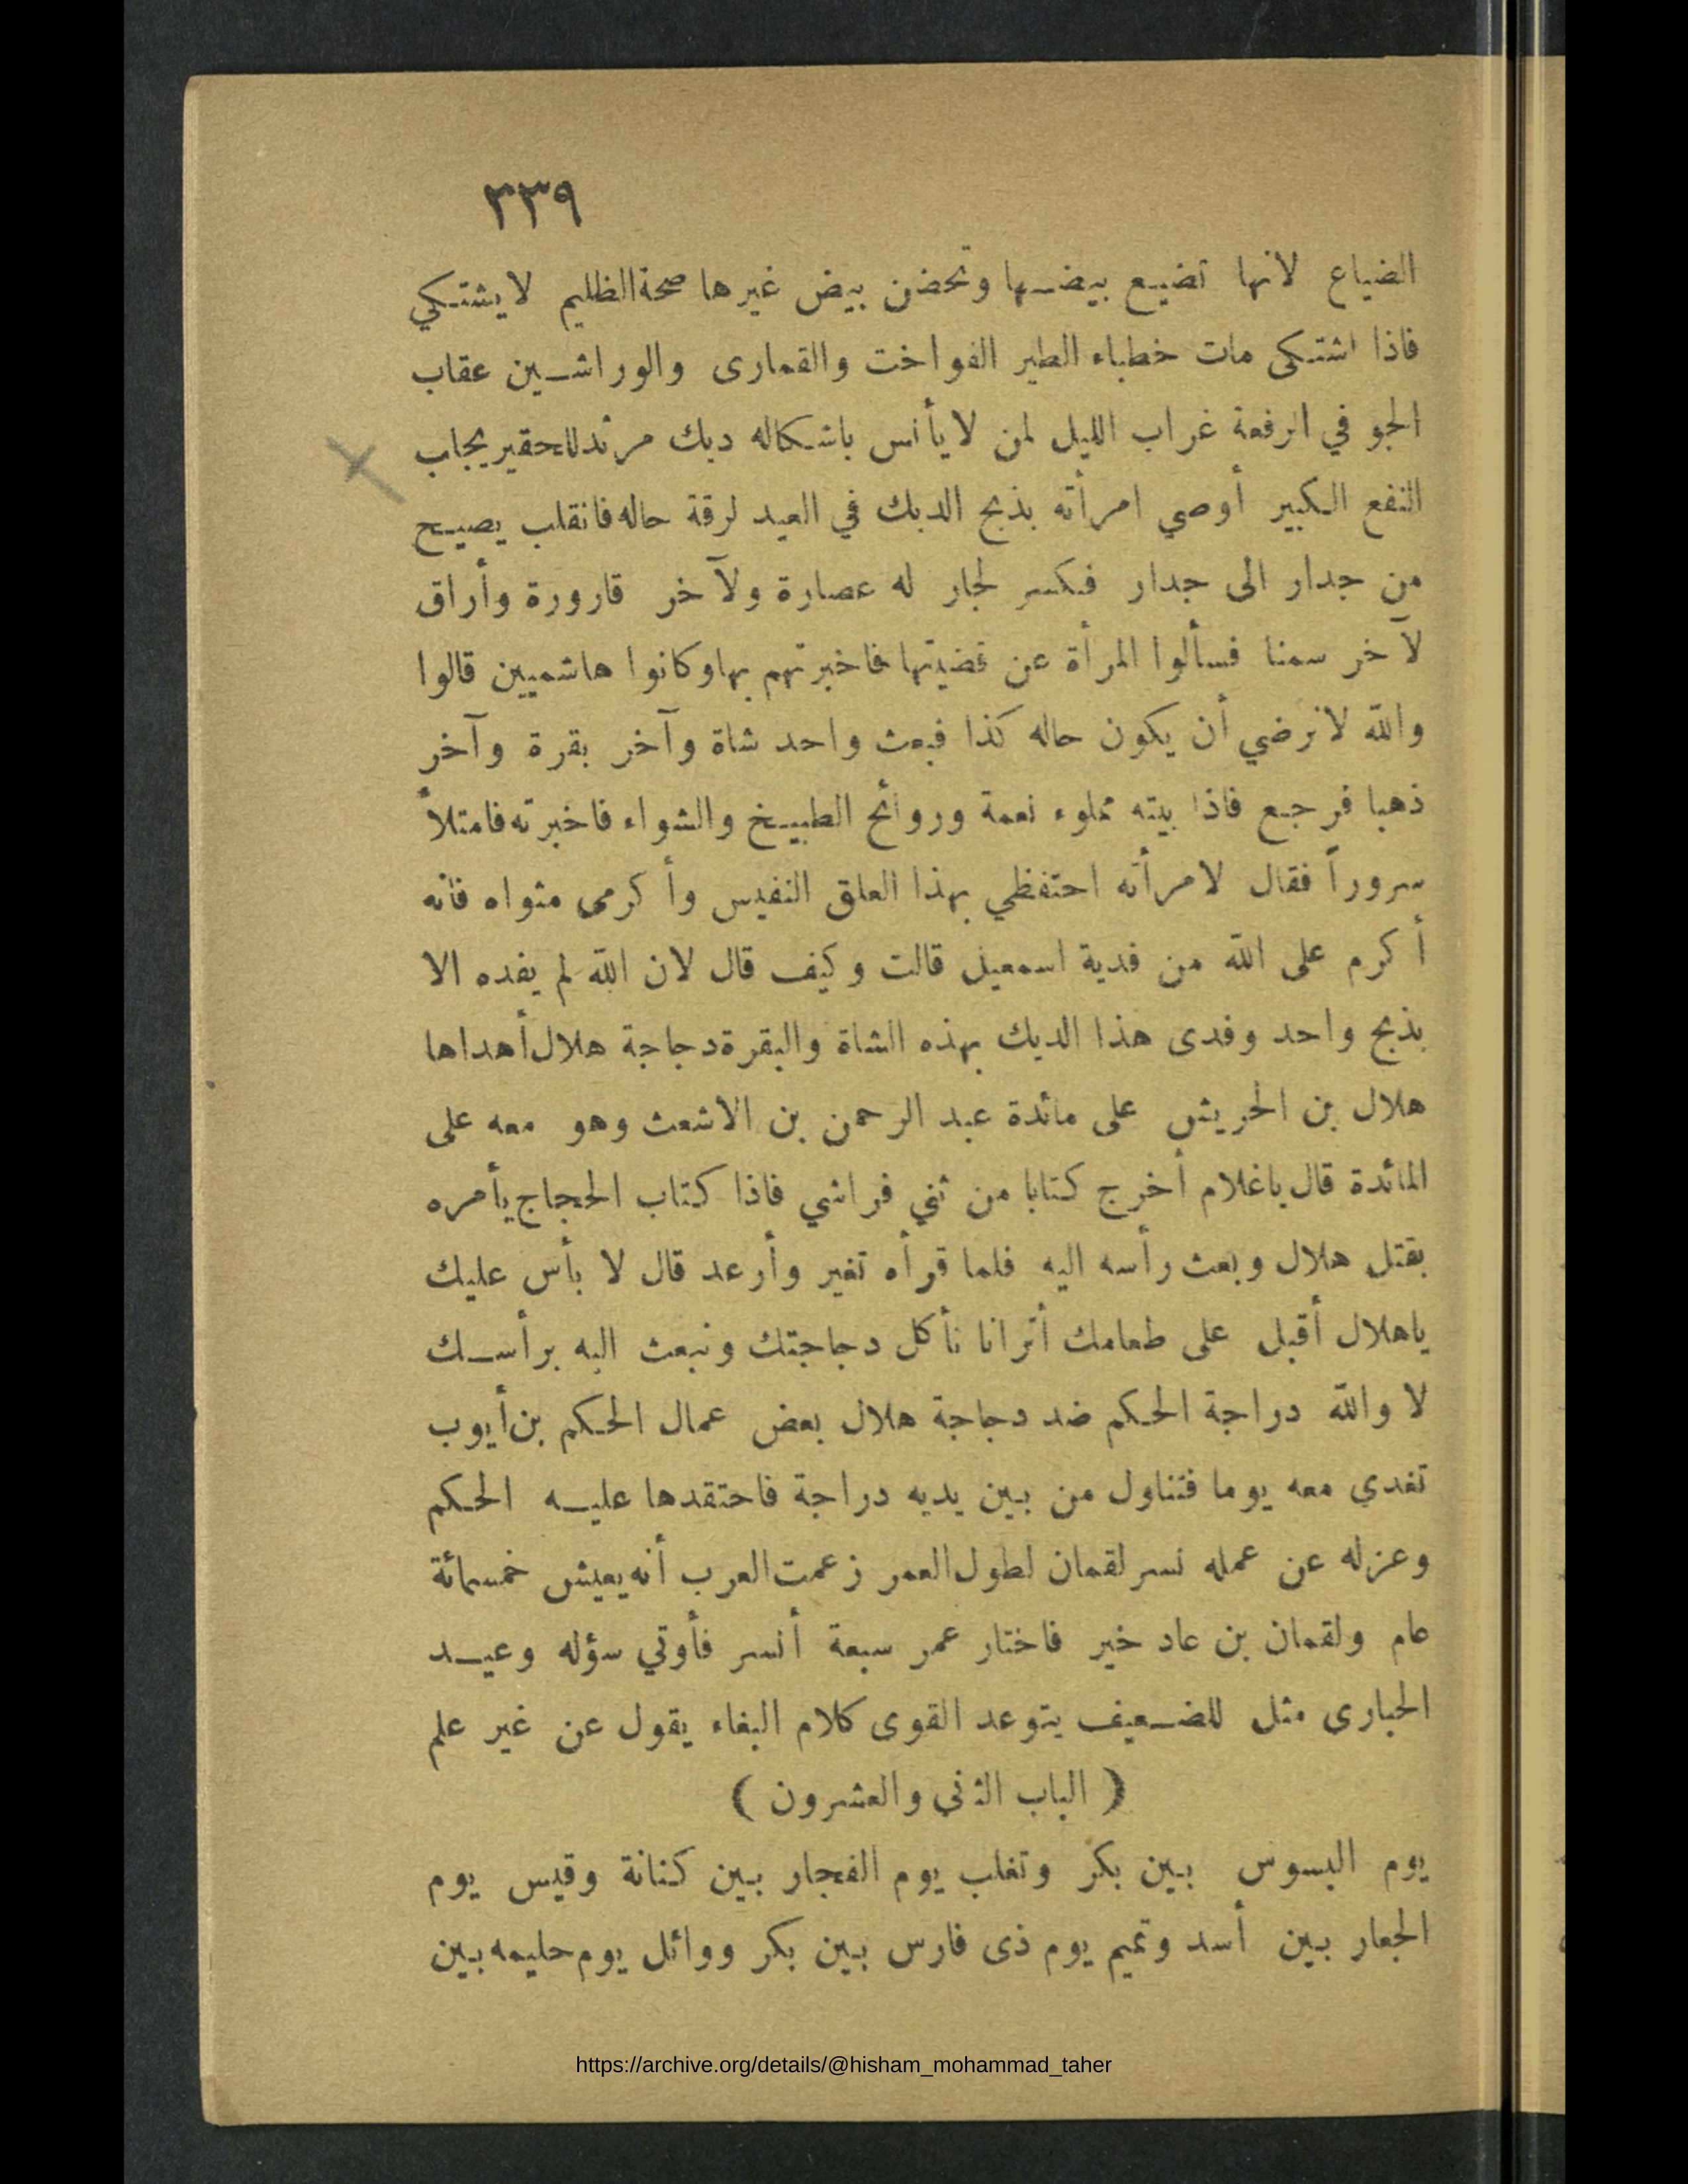 ٣٣٩
الضياع لانها تضيع بيضها وتحضن بيض غيرها صحة الظليم لا يشتكي
فاذا اشتكى مات خطباء الطير الفواخت والقمارى والوراشين عقاب
الجو في الرفعة غراب الليل لمن لا يأنس باشكاله ديك مرثد للحقير يجاب
النفع الكبير أوصي امرأته بذبح الديك في العيد لرقة حاله فانقلب يصيح
من جدار الى جدار فكسر لجار له عصارة ولآخر قارورة وأراق
لآخر سمنا فسألوا المرأة عن قضيتها فاخبرتهم بها وكانوا هاشميين قالوا
والله لا نرضي أن يكون حاله كذا فبعث واحد شاة وآخر بقرة وآخر
ذهبا فرجع فاذا بيته مملوء نعمة وروائح الطبيخ والشواء فاخبرته فامتلأ
سروراً فقال لامرأته احتفظي بهذا العلق النفيس وأكرمى مثواه فانه
أكرم على الله من فدية اسمعيل قالت وكيف قال لان الله لم يفده الا
بذبح واحد وفدى هذا الديك بهذه الشاة والبقرة دجاجة هلال أهداها
هلال بن الحريش على مائدة عبد الرحمن بن الاشعث وهو معه على
المائدة قال ياغلام أخرج كتابا من ثني فراشي فاذا كتاب الحجاج يأمره
بقتل هلال وبعث رأسه اليه فلما قرأه تغير وأرعد قال لا بأس عليك
ياهلال أقبل على طعامك أترانا نأكل دجاجتك ونبعث اليه برأسك
لا والله دراجة الحكم ضد دجاجة هلال بعض عمال الحكم بن أيوب
تغدي معه يوما فتناول من بين يديه دراجة فاحتقدها عليه الحكم
وعزله عن عمله نسر لقمان لطول العمر زعمت العرب أنه يعيش خمسمائة
عام ولقمان بن عاد خير فاختار عمر سبعة أنسر فأوتي سؤله وعيد
الحبارى مثل للضعيف يتوعد القوى كلام الببغاء يقول عن غير علم
( الباب الثني والعشرون )
يوم البسوس بين بكر وتغلب يوم الفجار بين كنانة وقيس يوم
الجعار بين أسد وتميم يوم ذى فارس بين بكر ووائل يوم حليمه بين
https://archive.org/details/@hisham_mohammad_taher